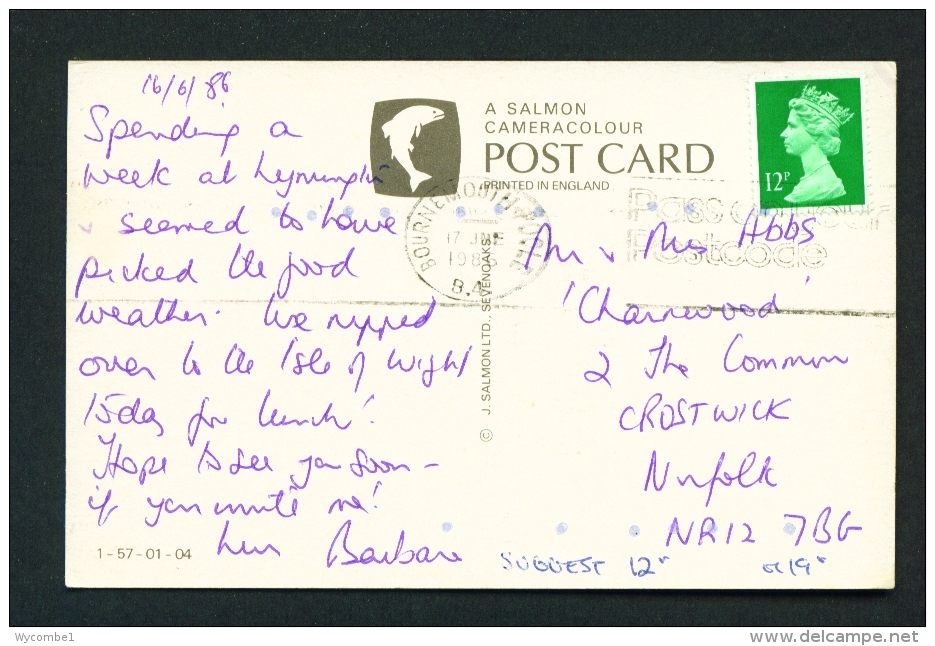 16/6/86
Spending a
week at Lymington
& seemed to have
picked the good
weather. We nipped
over to the Isle of Wight
today for lunch!
Hope to see you soon -
if you invite me!
Love Barbara
1-57-01-04
A SALMON
CAMERACOLOUR
POST CARD
PRINTED IN ENGLAND
© J. SALMON LTD., SEVENOAKS
BOURNEMOUTH POOLE
17 JNE
1986
12P
Postcode
Mr & Mrs Abbs
'Charnwood'
2 The Common
CROSTWICK
Norfolk
NR12 7BG
SUGGEST 12" or 19"
Wycombe1
www.delcampe.net